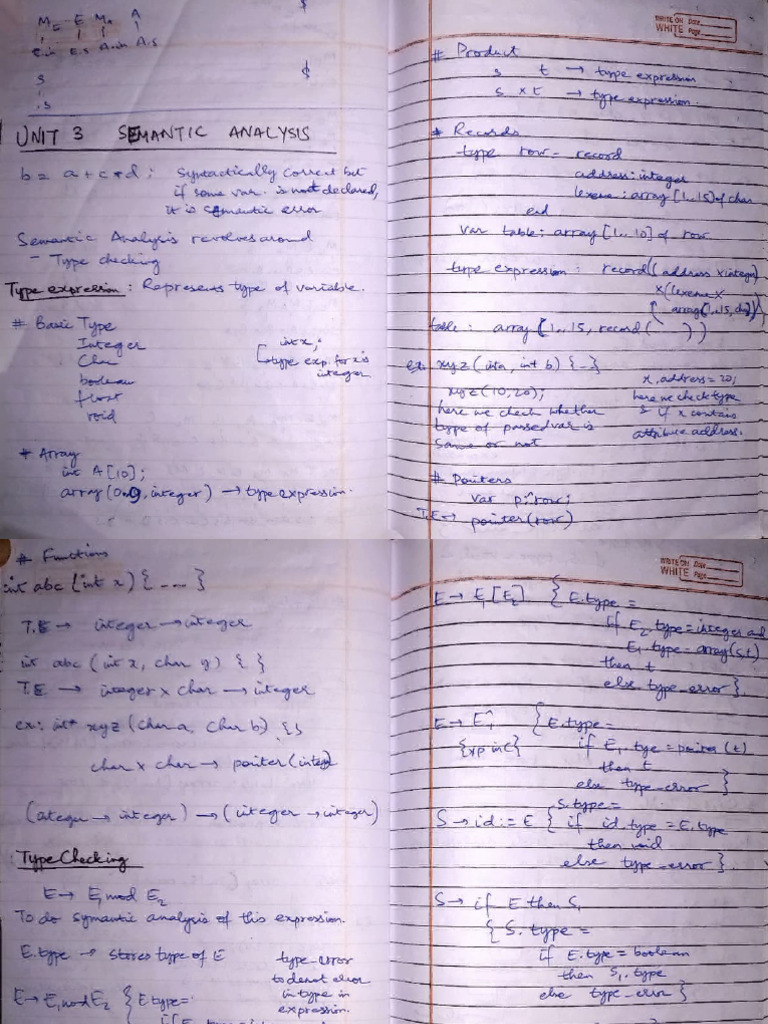 M E M A
$
UNIT 3 SEMANTIC ANALYSIS
b = a + c * d ; Syntactically correct but
if some var. is not declared,
it is semantic error
Semantic Analysis revolves around
- Type checking
Type expression : Represents type of variable.
# Basic Type
Integer
Char
boolean
float
void
int x;
type exp. for x is
integer
# Array
int A[10];
array(0..9, integer) → type expression.
WRITE ON Date
WHITE Page
# Product
s t → type expression
s × t → type expression.
# Records
type row = record
address: integer
lexeme: array [1..15] of char
end
Var table: array [1..10] of row
type expression : record((address × integer)
×(lexeme ×
array(1..15,
table : array (1..15, record( ))
ex: xyz (int a, int b) {-}
xyz(10, 20);
here we check whether
type of passed var is
same or not
x.address = 20;
here we check type
& if x contains
attribute address.
# Pointers
var p:^row;
T.E → pointer(row)
# Functions
int abc (int x) { --- }
T.E → integer → integer
int abc (int x, char y) { }
T.E → integer × char → integer
ex: int* xyz (char a, char b) {}
char × char → pointer(integer)
(integer → integer) → (integer → integer)
Type Checking
E → E1 mod E2
To do symantic analysis of this expression.
E.type → stores type of E
type-error
to denot error
in type in
expression.
E → E1 mod E2 { E.type =
WRITE ON Date
WHITE Page
E → E1[E2] { E.type =
if E2.type = integer and
E1.type = array(s,t)
then t
else type_error }.
E → E1^ { E.type =
{*p in C} if E1.tye = pointer (t)
then t
else type_error }
S.type =
S → id := E { if id.type = E.type
then void
else type_error }.
S → if E then S1
{ S.type =
if E.type = boolean
then S1.type
else type_error }